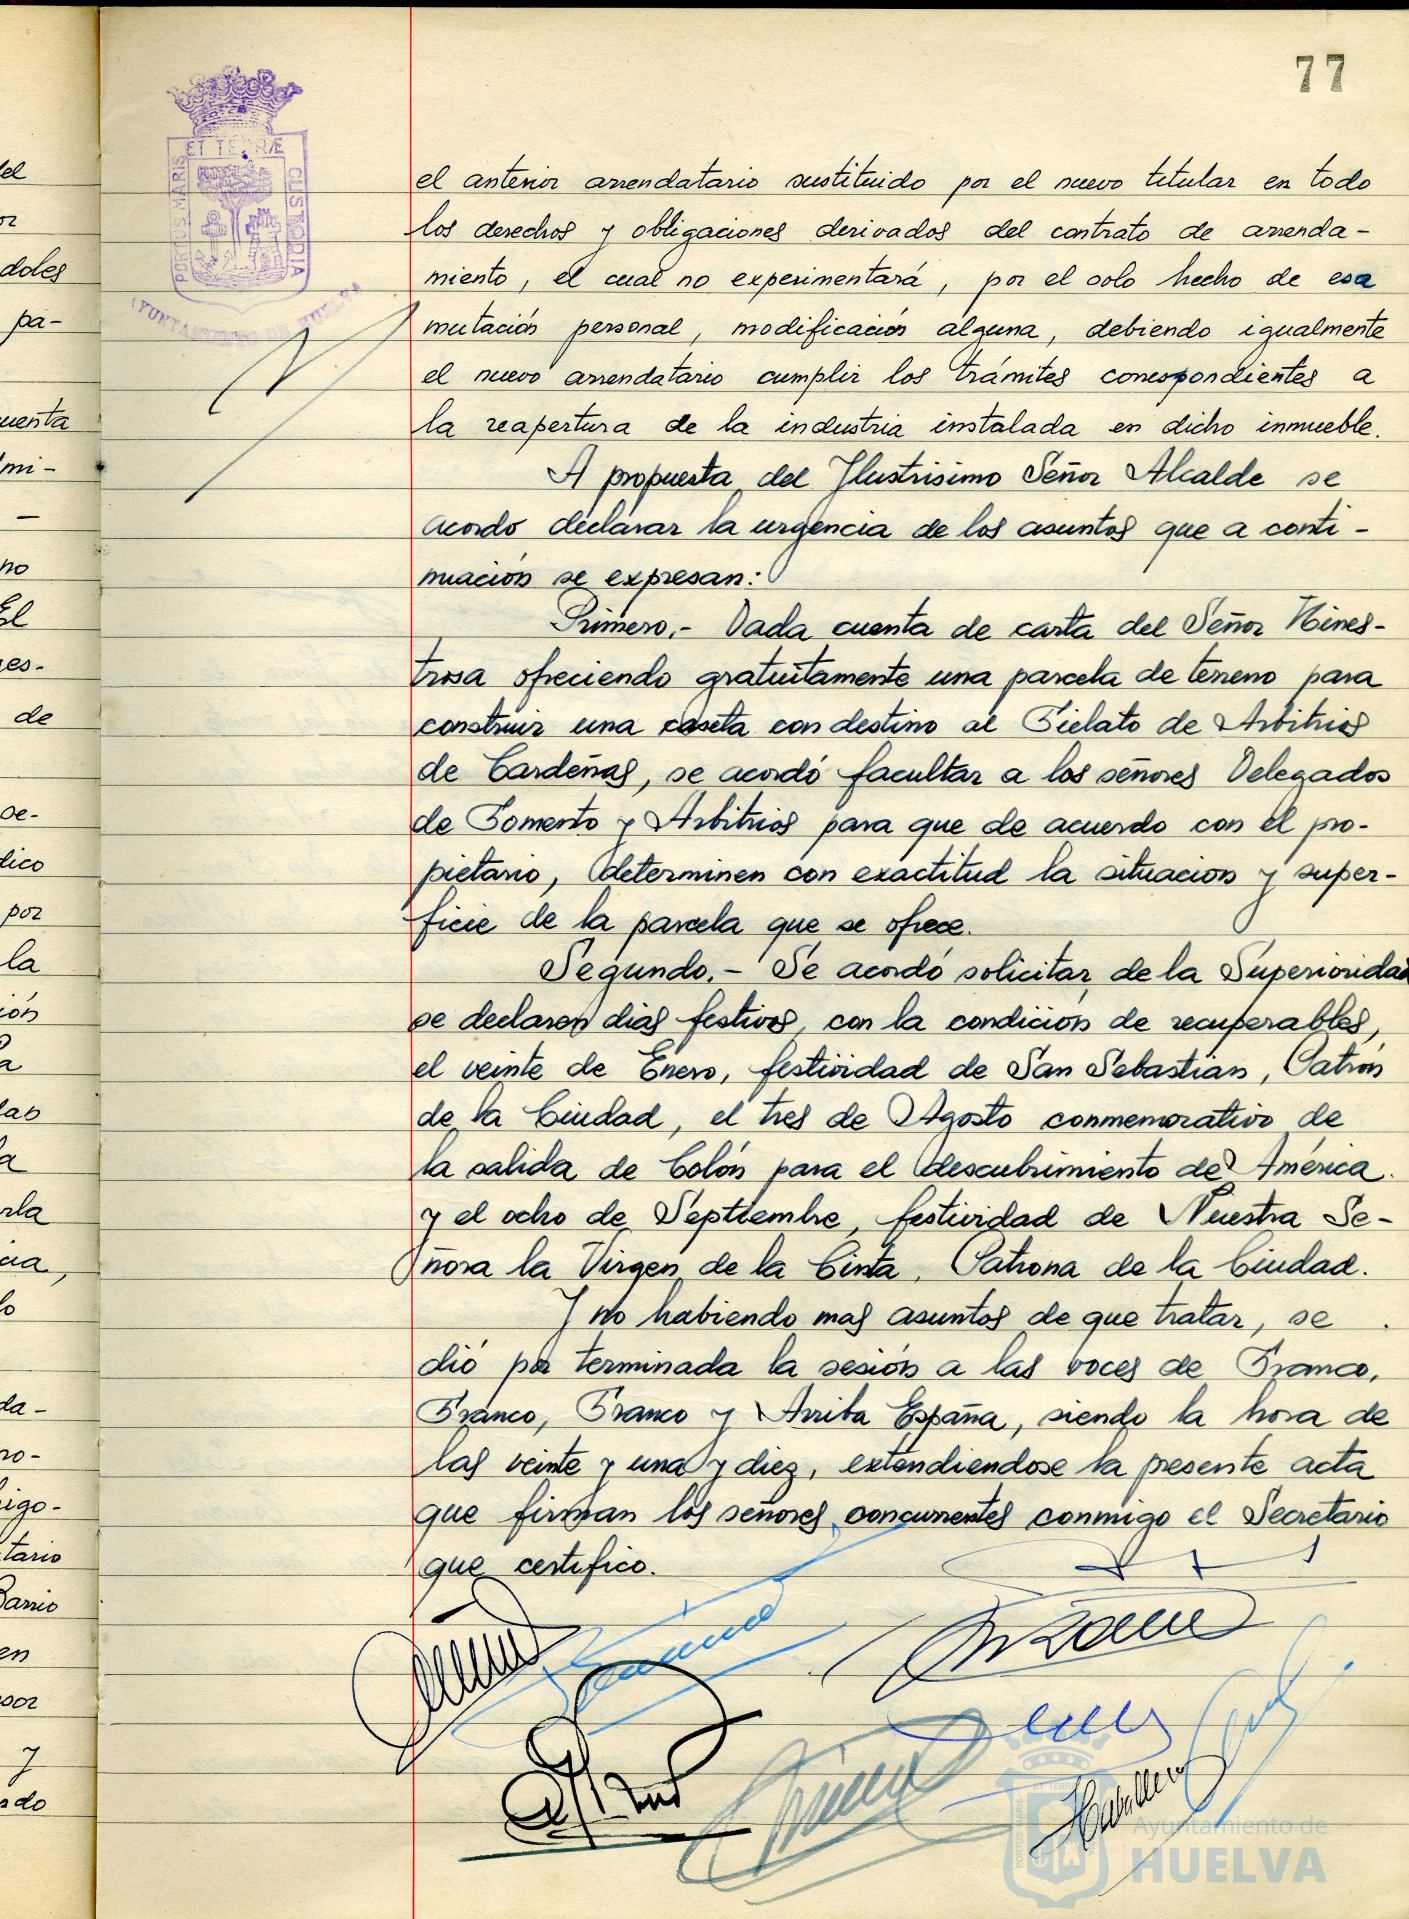 77
PORTUS MARIS
ET TERRÆ
CUSTODIA
AYUNTAMIENTO DE HUELVA
el anterior arrendatario sustituido por el nuevo titular en todo
los derechos y obligaciones derivados del contrato de arrenda-
miento, el cual no experimentará, por el solo hecho de esa
mutación personal, modificación alguna, debiendo igualmente
el nuevo arrendatario cumplir los trámites correspondientes a
la reapertura de la industria instalada en dicho inmueble.
A propuesta del Ilustrisimo Señor Alcalde se
acordo declarar la urgencia de los asuntos que a conti-
nuación se expresan:
Primero.- Dada cuenta de carta del Señor Hines-
trosa ofreciendo gratuitamente una parcela de terreno para
construir una caseta con destino al Fielato de Arbitrios
de Cardeñas, se acordó facultar a los señores Delegados
de Fomento y Arbitrios para que de acuerdo con el pro-
pietario, determinen con exactitud la situacion y super-
ficie de la parcela que se ofrece.
Segundo.- Se acordó solicitar de la Superioridad
se declaren dias festivos, con la condición de recuperables,
el veinte de Enero, festividad de San Sebastián, Patrón
de la Ciudad, el tres de Agosto conmemorativo de
la salida de Colón para el descubrimiento de América
y el ocho de Septiembre, festividad de Nuestra Se-
ñora la Virgen de la Cinta, Patrona de la Ciudad.
Y no habiendo mas asuntos de que tratar, se
dió por terminada la sesión a las voces de Franco,
Franco, Franco y Arriba España, siendo la hora de
las veinte y una y diez, extendiendose la presente acta
que firman los señores concurrentes conmigo el Secretario
que certifico.
Ayuntamiento de
HUELVA